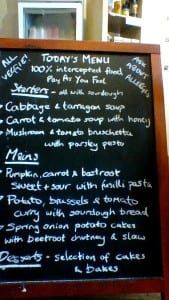 ALL VEGGIE!
TODAY'S MENU
100% intercepted food
Pay As You Feel
ASK ABOUT ALLERGIES
Starters - all with sourdough
Cabbage & tarragon soup
Carrot & tomato soup with honey
Mushroom & tomato bruschetta
with parsley pesto
Mains
Pumpkin, carrot & beetroot
sweet & sour with fusilli pasta
Potato, brussels & tomato
curry with sourdough bread
Spring onion potato cakes
with beetroot chutney & slaw
Desserts - selection of cakes
& bakes